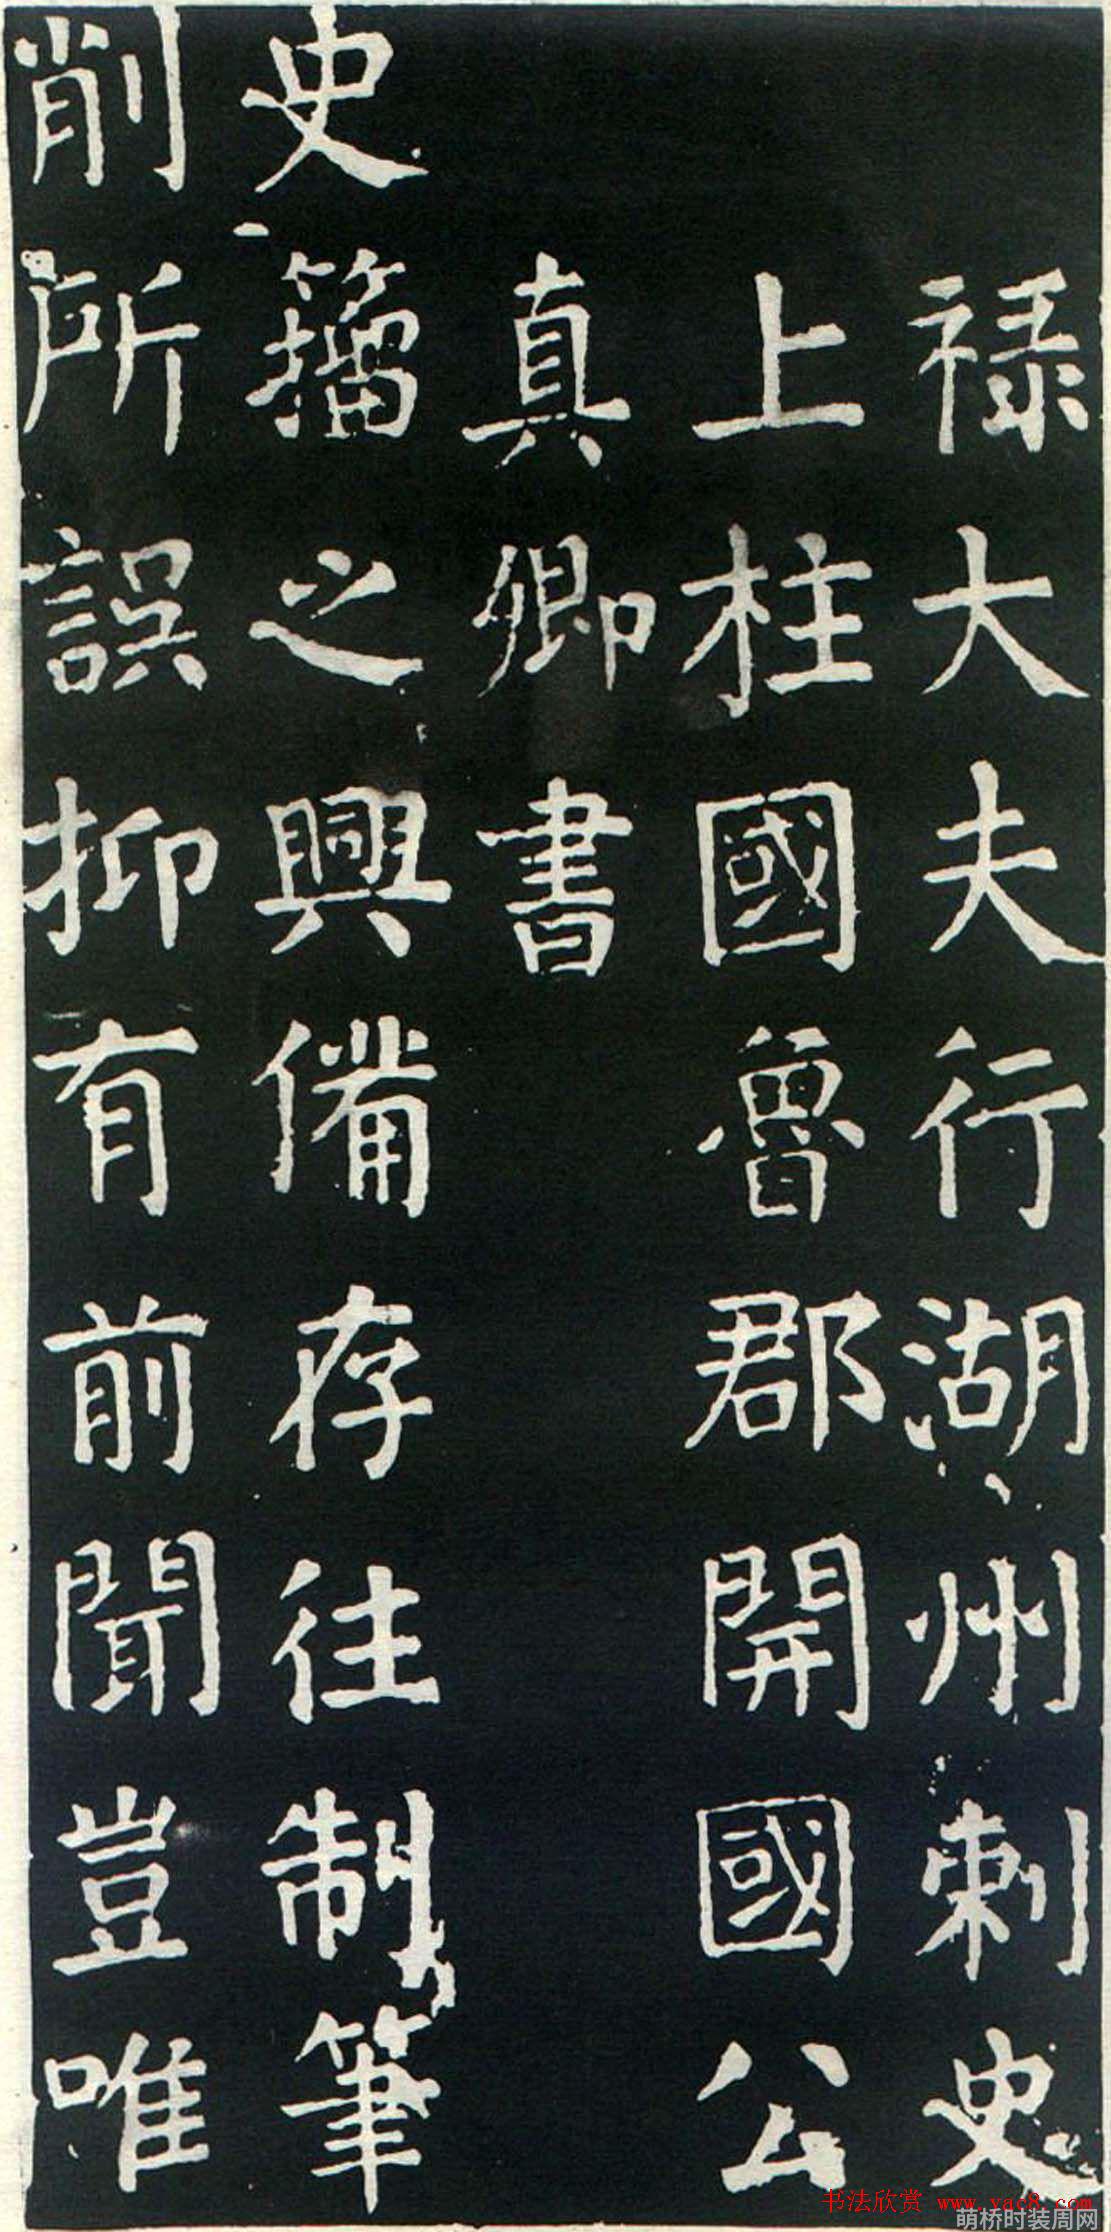 禄大夫行湖州刺史
上柱國魯郡開國公
真卿書
史籀之興備存往制筆
削所誤抑有前聞豈唯
书法欣赏 www.yac8.com
萌桥时装周网